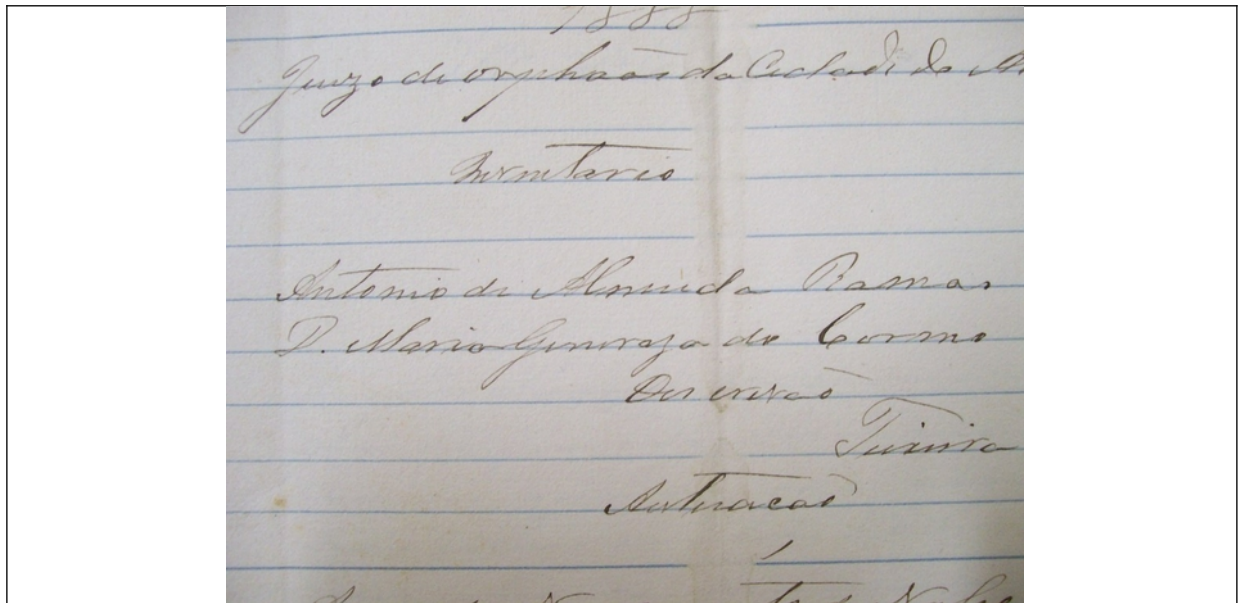 1888
Juizo de orphaõs da Cidade do
Inventario
Antonio de Almeida Ramos
D. Maria Generoza do Carmo
Oescrivaõ
Teixeira
Autuacaõ